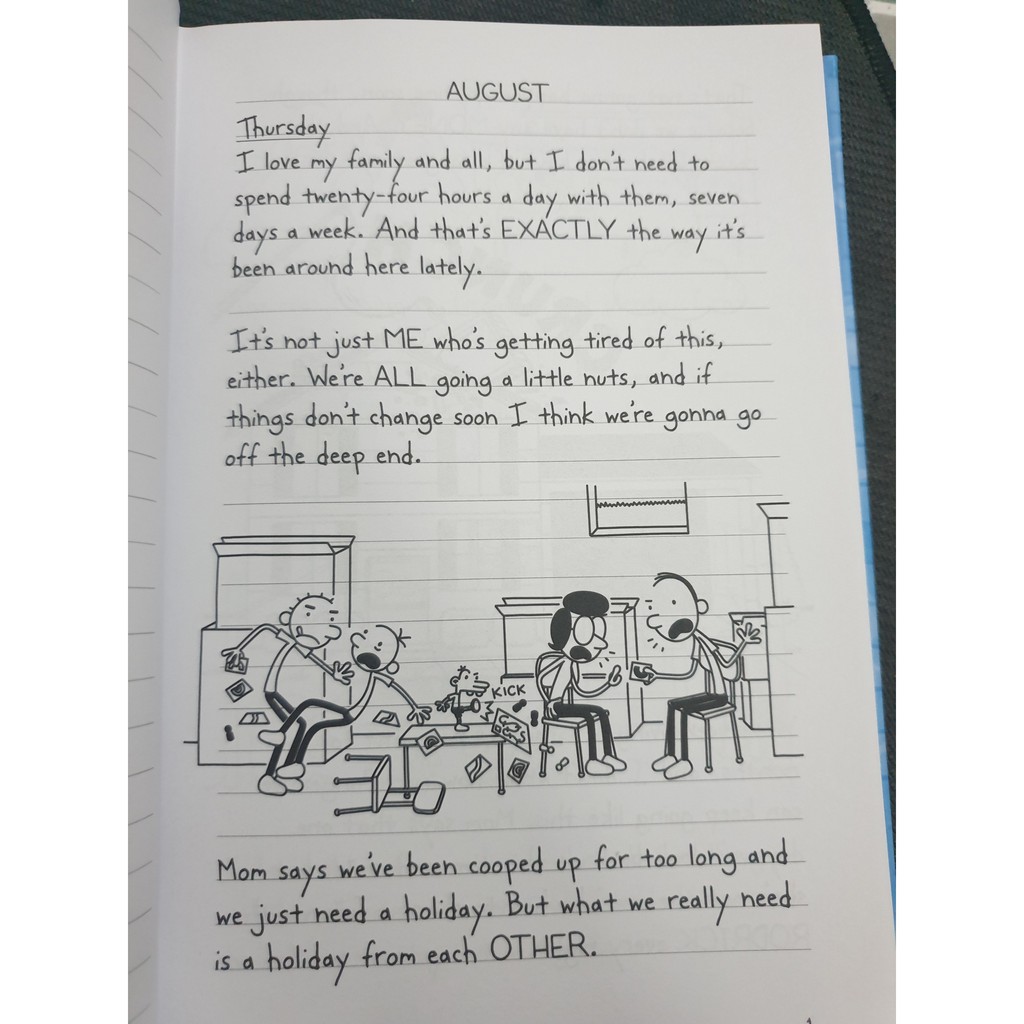 AUGUST
Thursday
I love my family and all, but I don't need to
spend twenty-four hours a day with them, seven
days a week. And that's EXACTLY the way it's
been around here lately.
It's not just ME who's getting tired of this,
either. We're ALL going a little nuts, and if
things don't change soon I think we're gonna go
off the deep end.
KICK
Mom says we've been cooped up for too long and
we just need a holiday. But what we really need
is a holiday from each OTHER.